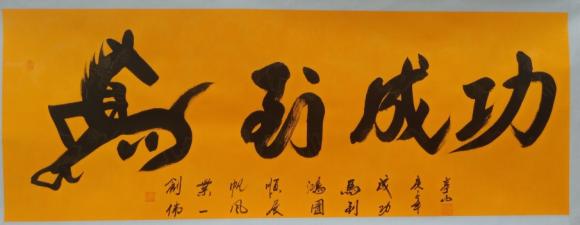 馬到成功
創偉
業一
帆風
順展
鴻圖
馬到
成功
庚子年